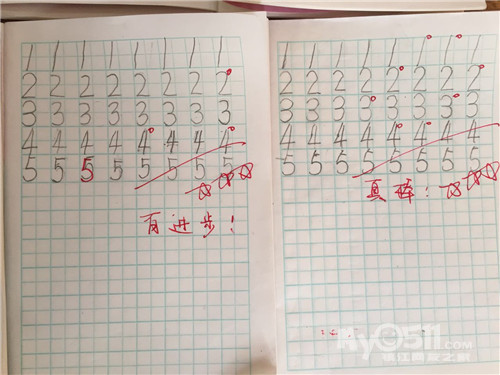 1 1 1 1 1 1 1 1
2 2 2 2 2 2 2 2
3 3 3 3 3 3 3 3
4 4 4 4 4 4 4 4
5 5 5 5 5 5 5 5
有进步!
1 1 1 1 1 1 1 1
2 2 2 2 2 2 2 2
3 3 3 3 3 3 3 3
4 4 4 4 4 4 4 4
5 5 5 5 5 5 5 5
真棒!
My0511.com
镇江网友之家